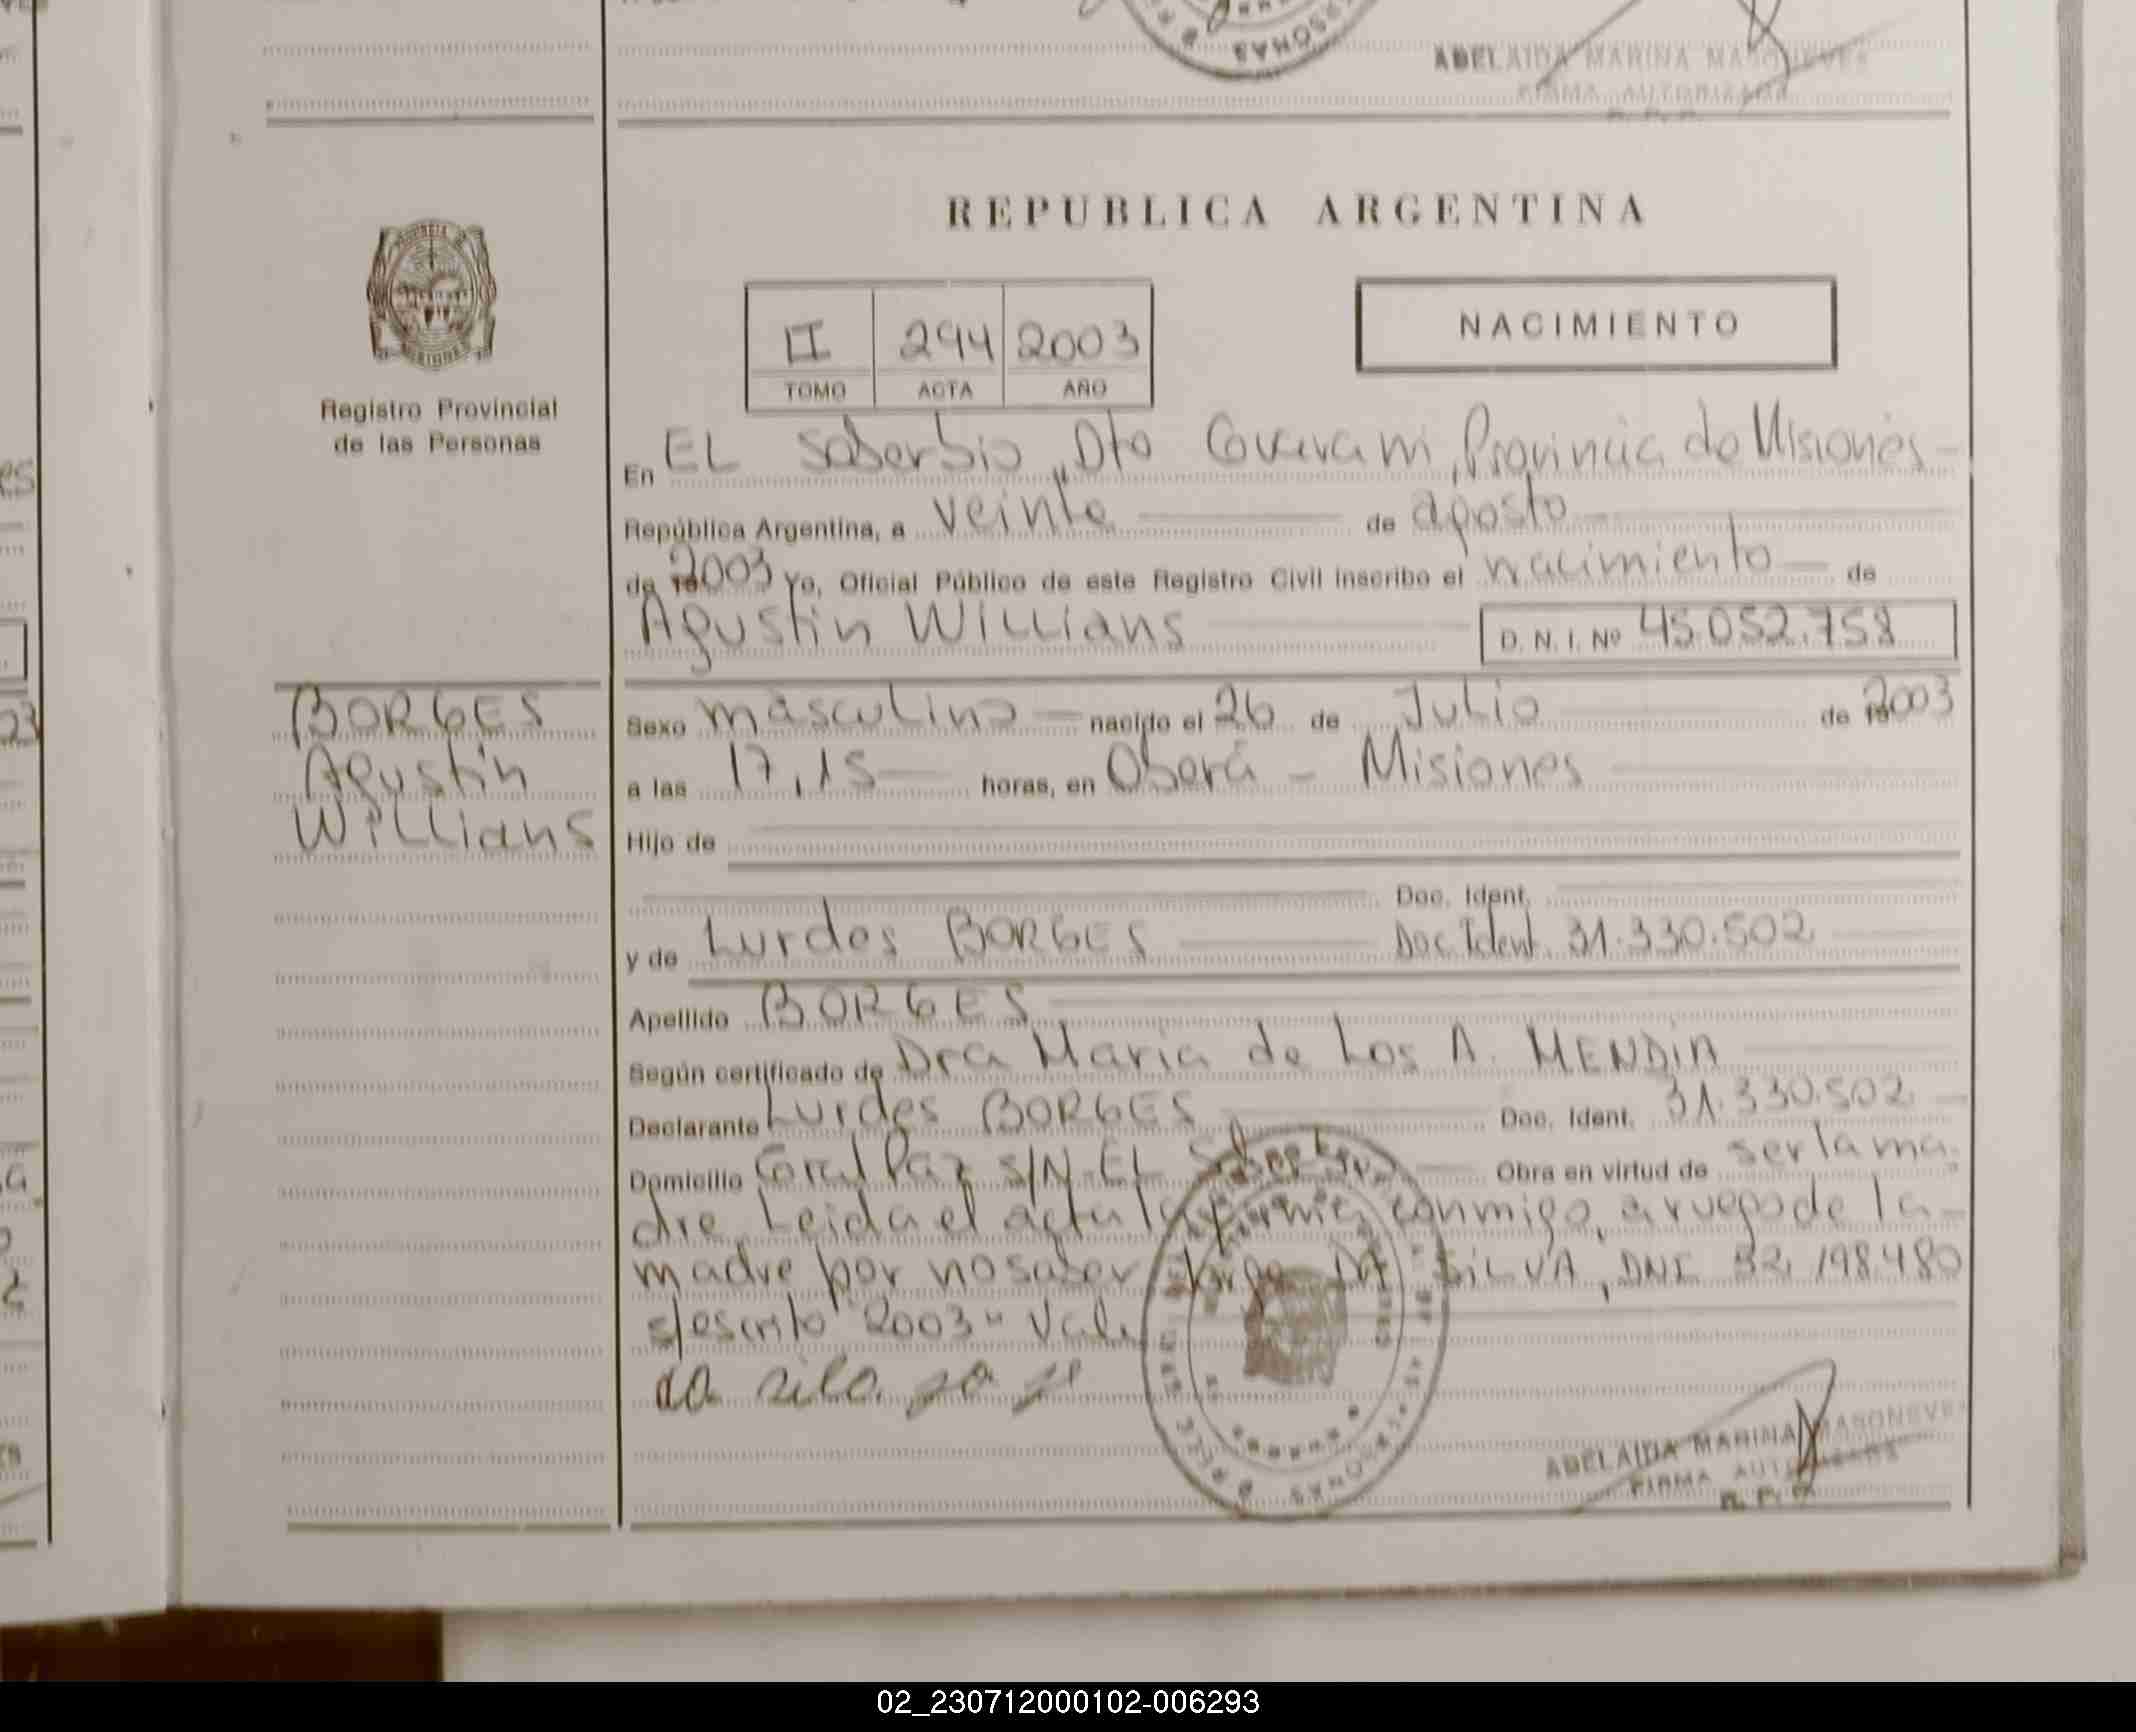 ADELAIDA MARINA MASONEVES
FIRMA AUTORIZADA
R. P. P.
REPUBLICA ARGENTINA
NACIMIENTO
II 294 2003
TOMO ACTA AÑO
Registro Provincial
de las Personas
En EL Soberbio, Dto Guarani, Provincia de Misiones
República Argentina, a veinte de agosto
de 2003 Yo, Oficial Público de este Registro Civil inscribo el nacimiento de
Agustin Willians D. N. I. Nº 45.052.758
BORGES
Agustin
Willians
Sexo masculino nacido el 26 de Julio de 2003
a las 17,15 horas, en Oberá - Misiones
Hijo de
Doc. Ident.
y de Lurdes BORGES Doc Ident. 31.330.502
Apellido BORGES
Según certificado de Dra Maria de Los A. MENDIN
Declarante Lurdes BORGES Doc. Ident. 31.330.502
Domicilio Gral Paz S/N EL Soberbio Obra en virtud de ser la ma
dre. Leida el acta la firma conmigo, a ruego de la
madre por no saber DA SILVA, DNI 32.198.480
s/escrito "2003" Vale
ADELAIDA MARINA MASONEVES
FIRMA AUTORIZADA
R. P. P.
02_230712000102-006293